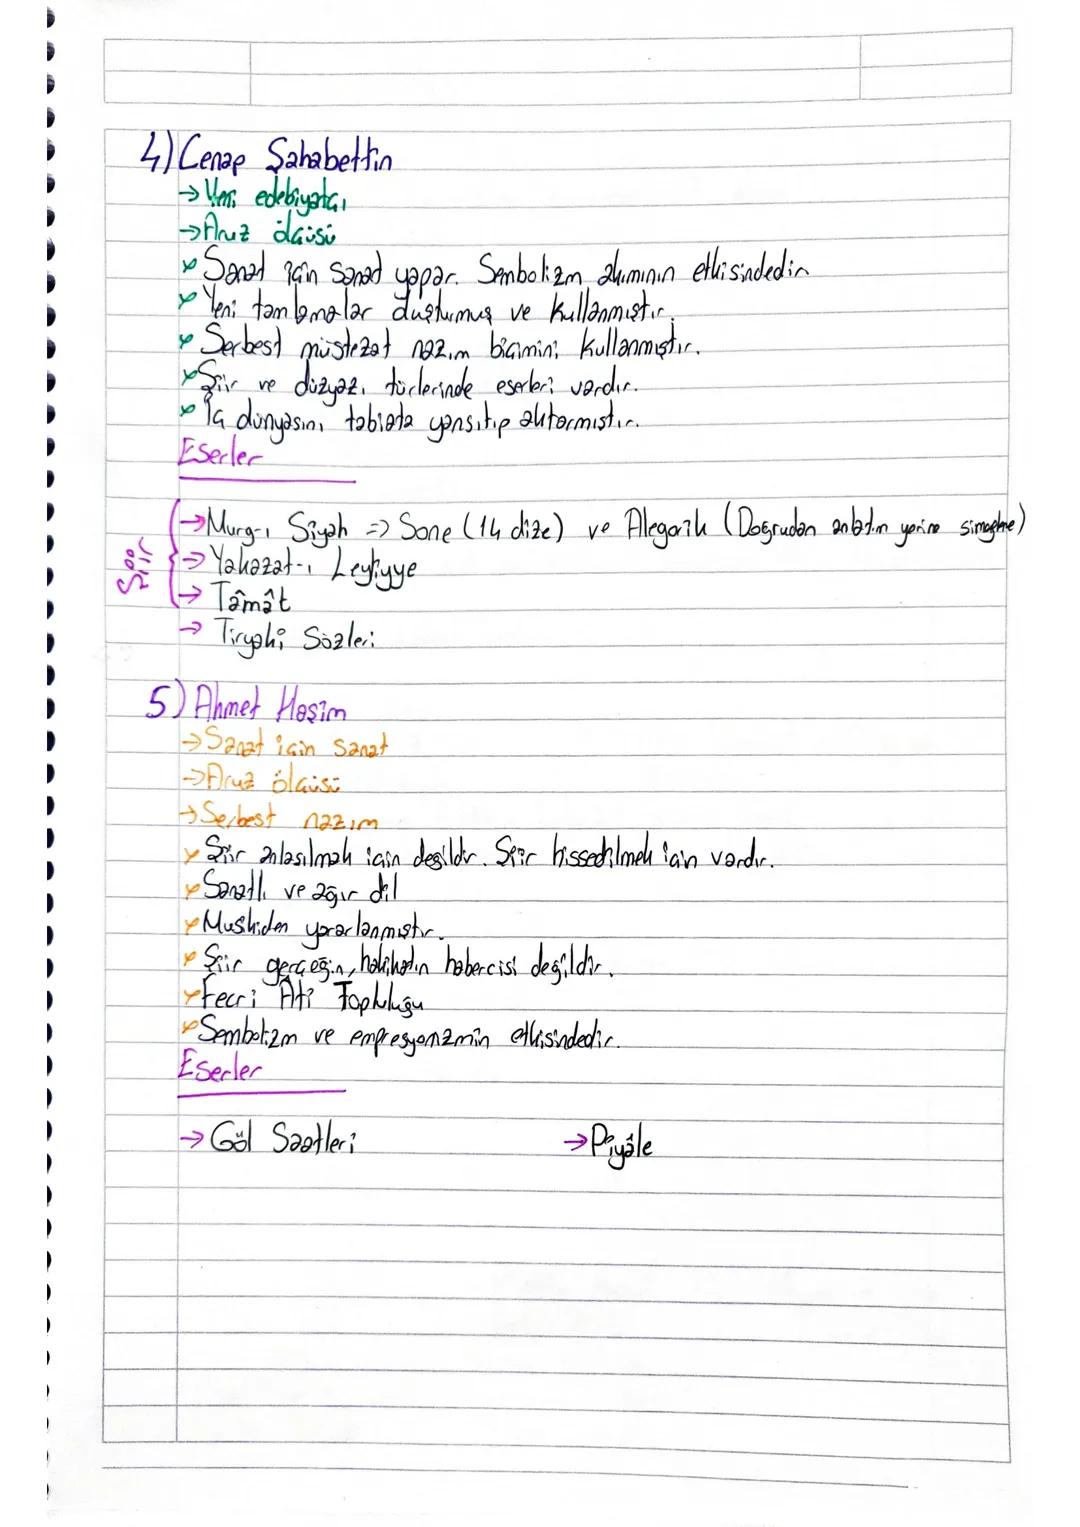 4) Cenap Şahabettin
→ Yeni edebiyatçı
→ Aruz ölçüsü
Sanat için sanat yapar. Sembolizm akımının etkisindedir
Yeni tamlamalar oluşturmuş ve kullanmıştır.
Serbest müstezat nazım biçimini kullanmıştır.
Şiir ve düzyazı türlerinde eserleri vardır.
İç dünyasını tabiata yansıtıp aktarmıştır.
Eserler
→ Murg-ı Siyah => Sone (14 dize) ve Alegorik (Doğrudan anlatım yerine simgeleme)
→ Yakazat-ı Leyliyye
→ Tâmât
→ Tiryaki Sözleri
5) Ahmet Haşim
→ Sanat için sanat
→ Aruz ölçüsü
→ Serbest nazım
Şiir anlaşılmak için değildir. Şiir hissedilmek için vardır.
Sanatlı ve ağır dil
Musikiden yararlanmıştır.
Şiir gerçeğin, hakikatın habercisi değildir.
Fecri Âti Topluluğu
Sembolizm ve empresyonizmin etkisindedir.
Eserler
→ Göl Saatleri → Piyâle